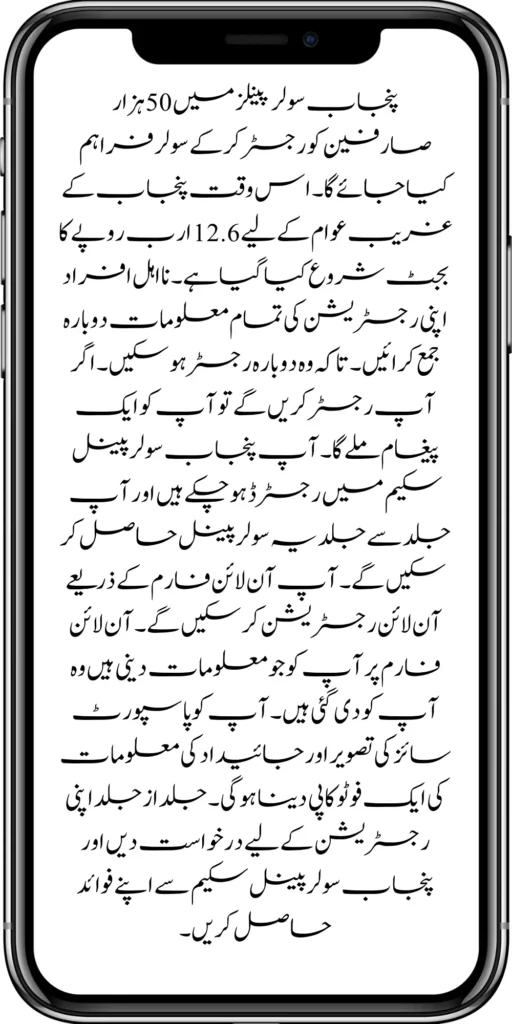 پنجاب سولر پینلز میں 50 ہزار
صارفین کو رجسٹر کر کے سولر فراہم
کیا جائے گا۔ اس وقت پنجاب کے
غریب عوام کے لیے 12.6 ارب روپے کا
بجٹ شروع کیا گیا ہے۔ نااہل افراد
اپنی رجسٹریشن کی تمام معلومات دوبارہ
جمع کرائیں۔ تاکہ وہ دوبارہ رجسٹر ہو سکیں۔ اگر
آپ رجسٹر کریں گے تو آپ کو ایک
پیغام ملے گا۔ آپ پنجاب سولر پینل
سکیم میں رجسٹرڈ ہو چکے ہیں اور آپ
جلد سے جلد یہ سولر پینل حاصل کر
سکیں گے۔ آپ آن لائن فارم کے ذریعے
آن لائن رجسٹریشن کر سکیں گے۔ آن لائن
فارم پر آپ کو جو معلومات دینی ہیں وہ
آپ کو دی گئی ہیں۔ آپ کو پاسپورٹ
سائز کی تصویر اور جائیداد کی معلومات
کی ایک فوٹو کاپی دینا ہو گی۔ جلد از جلد اپنی
رجسٹریشن کے لیے درخواست دیں اور
پنجاب سولر پینل سکیم سے اپنے فوائد
حاصل کریں۔